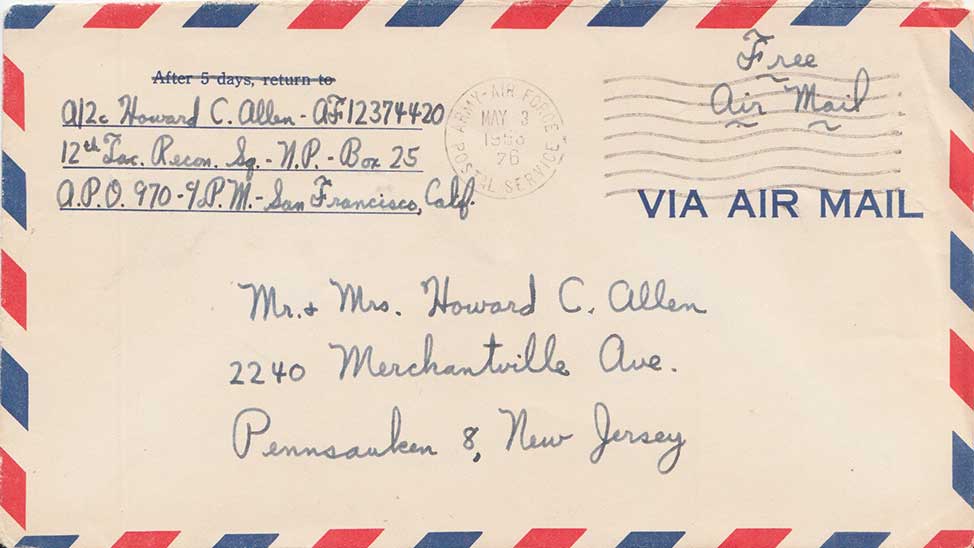 After 5 days, return to
A/2c Howard C. Allen - AF12374420
12th Tac. Recon. Sq. - N.P. - Box 25
A.P.O. 970 - c/o P.M. - San Francisco, Calif.
ARMY-AIR FORCE
MAY 3
1953
26
POSTAL SERVICE
Free
Air Mail
VIA AIR MAIL
Mr. + Mrs. Howard C. Allen
2240 Merchantville Ave.
Pennsauken 8, New Jersey